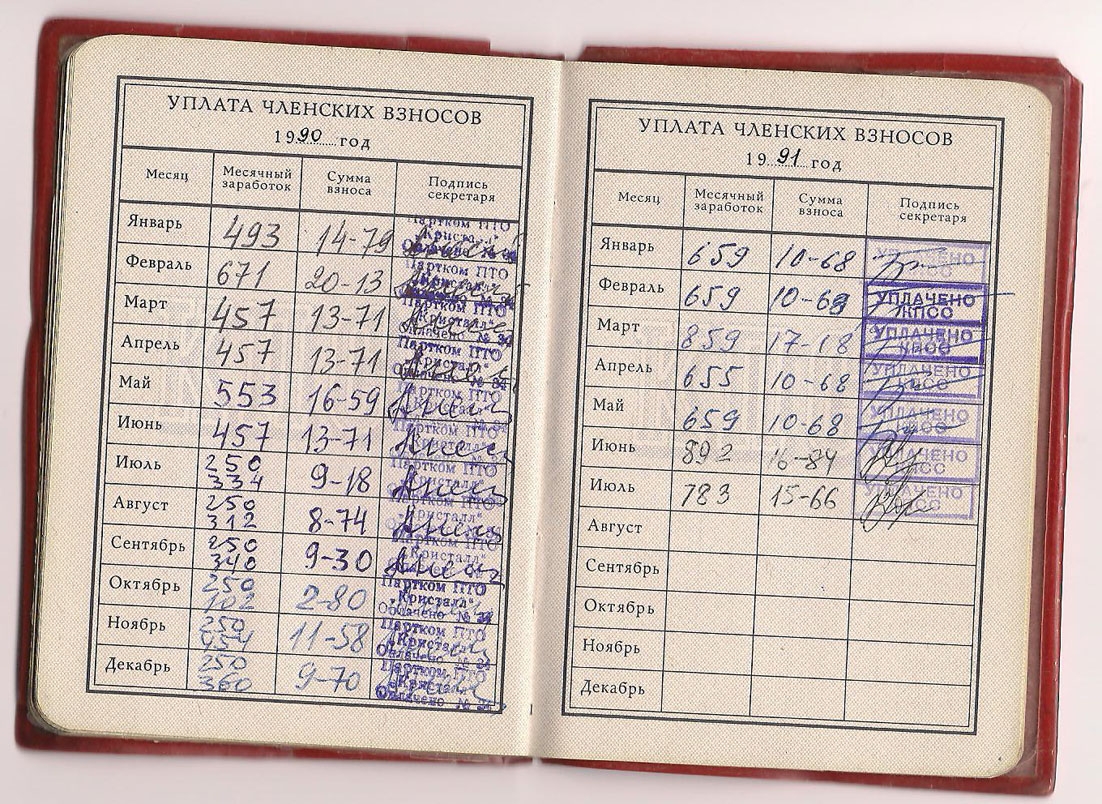 УПЛАТА ЧЛЕНСКИХ ВЗНОСОВ
1990 год
Месяц Месячный заработок Сумма взноса Подпись секретаря
Январь 493 14-79 Партком ПТО "Кристалл" Оплачено
Февраль 671 20-13 Партком ПТО
Март 457 13-71 Партком ПТО "Кристалл" Оплачено №
Апрель 457 13-71 Партком ПТО Оплачено №
Май 553 16-59 Партком ПТО
Июнь 457 13-71 Партком ПТО "Кристалл"
Июль 250 334 9-18 Партком ПТО
Август 250 312 8-74 "Кристалл"
Сентябрь 250 340 9-30 Партком ПТО "Кристалл"
Октябрь 250 102 2-80 Партком ПТО "Кристалл" Оплачено №
Ноябрь 250 454 11-58 Партком ПТО "Кристалл" Оплачено №
Декабрь 250 360 9-70 Партком ПТО Оплачено №
УПЛАТА ЧЛЕНСКИХ ВЗНОСОВ
1991 год
Месяц Месячный заработок Сумма взноса Подпись секретаря
Январь 659 10-68 УПЛАЧЕНО
Февраль 659 10-68 УПЛАЧЕНО КПСС
Март 859 17-18 УПЛАЧЕНО КПСС
Апрель 655 10-68 УПЛАЧЕНО КПСС
Май 659 10-68 УПЛАЧЕНО КПСС
Июнь 892 16-84 УПЛАЧЕНО КПСС
Июль 783 15-66 УПЛАЧЕНО КПСС
Август
Сентябрь
Октябрь
Ноябрь
Декабрь